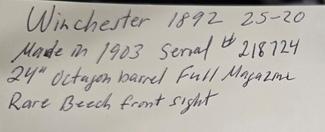 Winchester 1892 25-20
Made in 1903 Serial # 218724
24" Octagon barrel Full Magazine
Rare Beech front sight